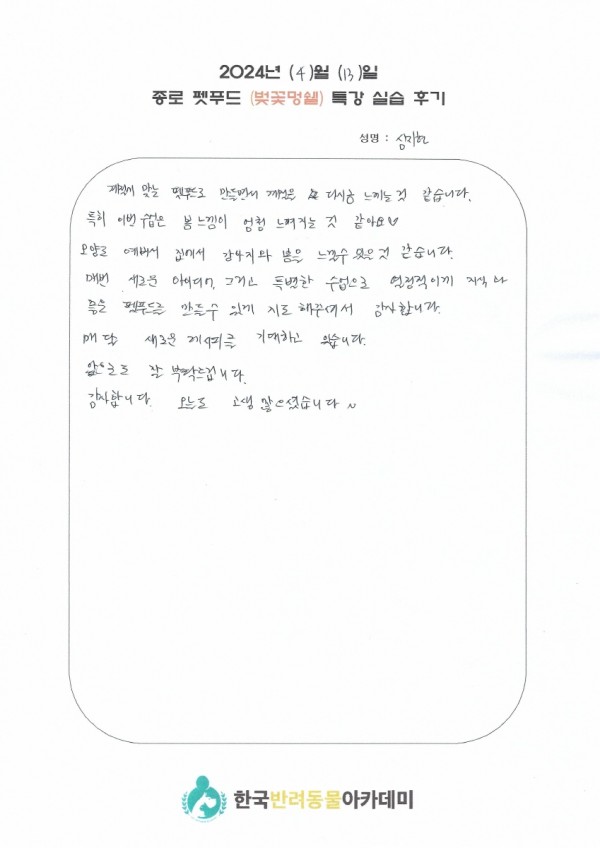 2024년 (4)월 (13)일
종로 펫푸드 (벚꽃멍쉘) 특강 실습 후기
성명 : 심지현
계절에 맞는 펫푸드로 만들면서 계절을 다시금 느끼는 것 같습니다.
특히 이번 수업은 봄 느낌이 엄청 느껴지는 것 같아요♡
모양도 예뻐서 집에서 강아지와 봄을 느낄수 있은것 같습니다.
매번 새로운 아이디어, 그리고 특별한 수업으로 열정적이게 지식과
좋은 펫푸드를 만들수 있게 지도 해주셔서 감사합니다.
매 달 새로운 레시피를 기대하고 있습니다.
앞으로도 잘 부탁드립니다.
감사합니다. 오늘도 고생 많으셨습니다~
한국반려동물아카데미